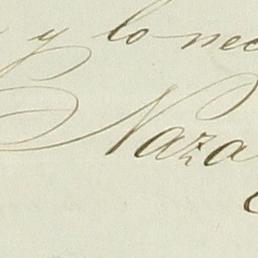 y lo nec
Naza